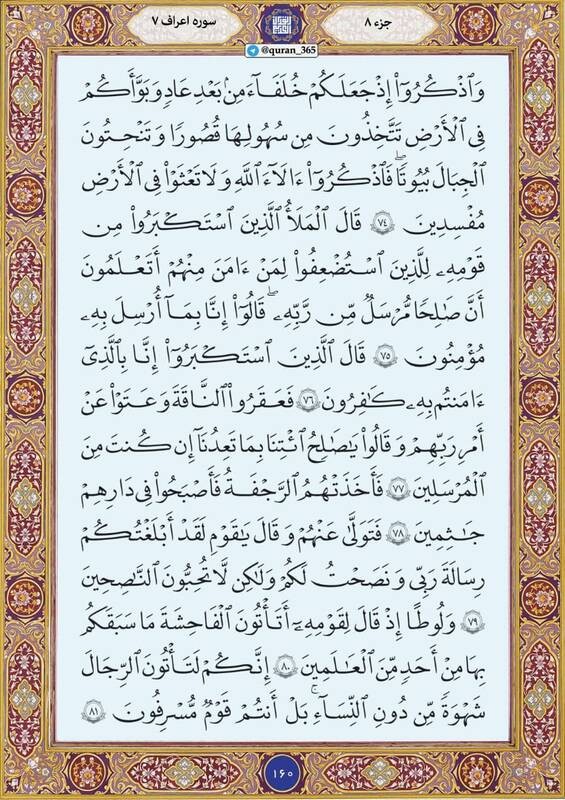 جزء ۸
سوره اعراف ۷
@quran_365
وَٱذْكُرُوٓا۟ إِذْ جَعَلَكُمْ خُلَفَآءَ مِنۢ بَعْدِ عَادٍ وَبَوَّأَكُمْ
فِى ٱلْأَرْضِ تَتَّخِذُونَ مِن سُهُولِهَا قُصُورًا وَتَنْحِتُونَ
ٱلْجِبَالَ بُيُوتًا ۖ فَٱذْكُرُوٓا۟ ءَالَآءَ ٱللَّهِ وَلَا تَعْثَوْا۟ فِى ٱلْأَرْضِ
مُفْسِدِينَ ۷۴ قَالَ ٱلْمَلَأُ ٱلَّذِينَ ٱسْتَكْبَرُوا۟ مِن
قَوْمِهِۦ لِلَّذِينَ ٱسْتُضْعِفُوا۟ لِمَنْ ءَامَنَ مِنْهُمْ أَتَعْلَمُونَ
أَنَّ صَٰلِحًا مُّرْسَلٌ مِّن رَّبِّهِۦ ۚ قَالُوٓا۟ إِنَّا بِمَآ أُرْسِلَ بِهِۦ
مُؤْمِنُونَ ۷۵ قَالَ ٱلَّذِينَ ٱسْتَكْبَرُوٓا۟ إِنَّا بِٱلَّذِىٓ
ءَامَنتُم بِهِۦ كَٰفِرُونَ ۷۶ فَعَقَرُوا۟ ٱلنَّاقَةَ وَعَتَوْا۟ عَنْ
أَمْرِ رَبِّهِمْ وَقَالُوا۟ يَٰصَٰلِحُ ٱئْتِنَا بِمَا تَعِدُنَآ إِن كُنتَ مِنَ
ٱلْمُرْسَلِينَ ۷۷ فَأَخَذَتْهُمُ ٱلرَّجْفَةُ فَأَصْبَحُوا۟ فِى دَارِهِمْ
جَٰثِمِينَ ۷۸ فَتَوَلَّىٰ عَنْهُمْ وَقَالَ يَٰقَوْمِ لَقَدْ أَبْلَغْتُكُمْ
رِسَالَةَ رَبِّى وَنَصَحْتُ لَكُمْ وَلَٰكِن لَّا تُحِبُّونَ ٱلنَّٰصِحِينَ
۷۹ وَلُوطًا إِذْ قَالَ لِقَوْمِهِۦٓ أَتَأْتُونَ ٱلْفَٰحِشَةَ مَا سَبَقَكُم
بِهَا مِنْ أَحَدٍ مِّنَ ٱلْعَٰلَمِينَ ۸۰ إِنَّكُمْ لَتَأْتُونَ ٱلرِّجَالَ
شَهْوَةً مِّن دُونِ ٱلنِّسَآءِ ۚ بَلْ أَنتُمْ قَوْمٌ مُّسْرِفُونَ ۸۱
۱۶۰